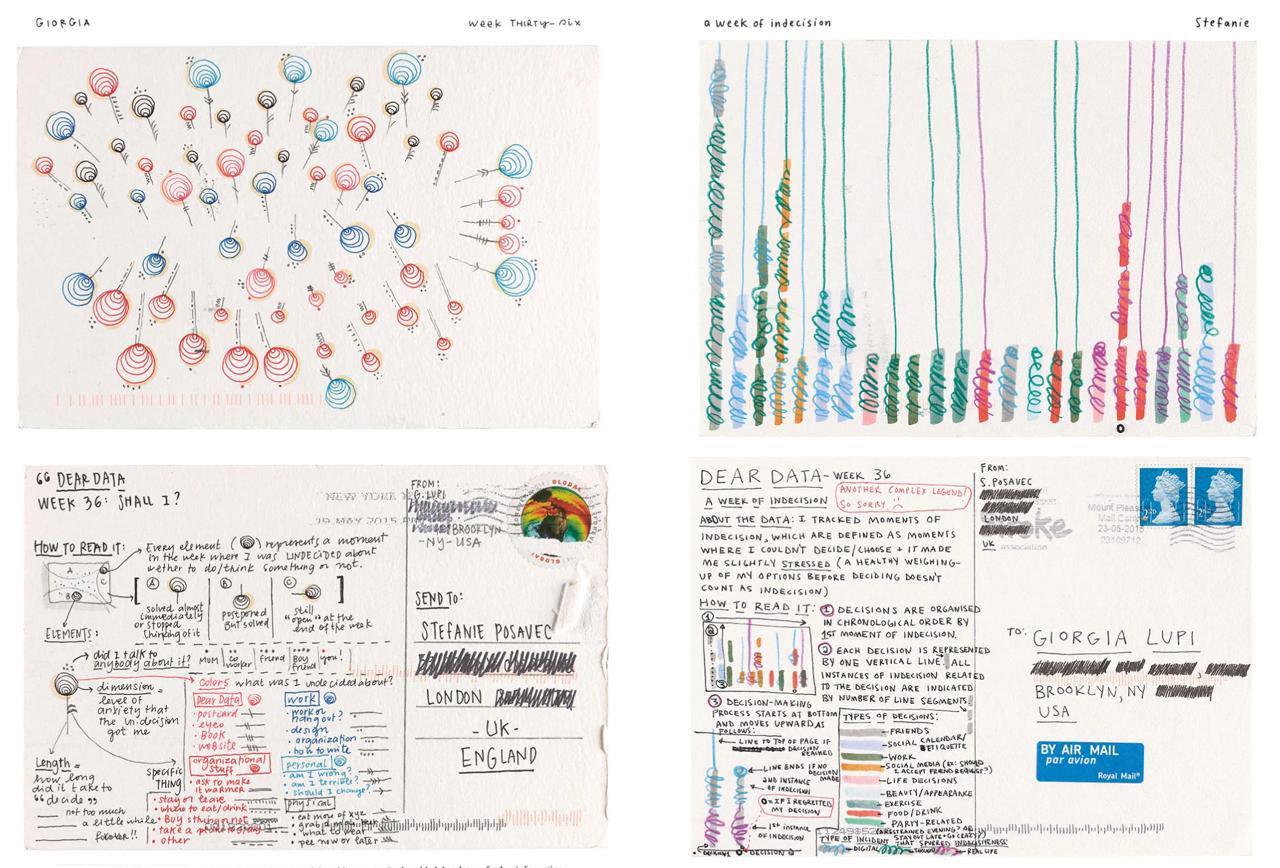 GIORGIA
WEEK THIRTY-SIX
a week of indecision
Stefanie
" DEAR DATA
WEEK 36: SHALL I?
HOW TO READ IT:
Every element ( ) represents a moment
in the week where I was UNDECIDED about
wether to do/think something or not.
A
B
C
A
solved almost
immediately
or stopped
thinking of it
B
postponed
But solved
C
still
"open" at the
end of the week
ELEMENTS:
did I talk to
anybody about it?
MUM
co
worker
friend
Boy
friend
you!
dimension =
level of
anxiety that
the un-dicision
got me
Length =
how long
did it take to
"decide"
not too much
a little while
forever!!
colors = what was I undecided about?
Dear Data
• postcard
• eyeo
• Book
• website
organizational
stuff
• ask to make
it warmer
specific
THING
• stay or leave
• when to eat/drink
• Buy sthing-not
• take a
• other
work
• work or
hang out?
• design
• organization
• how to write
personal
• am I wrong?
• am I terrible?
• should I change?
physical
• eat more of xyz
• what to wear
• pee now or later
FROM:
G. LUPI
BROOKLYN
-NY- USA
NEW YORK
19 MAY 2015
GLOBAL
SEND TO:
STEFANIE POSAVEC
LONDON
- UK -
ENGLAND
DEAR DATA- WEEK 36
A WEEK OF INDECISION
ANOTHER COMPLEX LEGEND!
SO SORRY
ABOUT THE DATA: I TRACKED MOMENTS OF
INDECISION, WHICH ARE DEFINED AS MOMENTS
WHERE I COULDN'T DECIDE/CHOOSE + IT MADE
ME SLIGHTLY STRESSED (A HEALTHY WEIGH-
UP OF MY OPTIONS BEFORE DECIDING DOESN'T
COUNT AS INDECISION)
HOW TO READ IT:
1 DECISIONS ARE ORGANISED
IN CHRONOLOGICAL ORDER BY
1ST MOMENT OF INDECISION.
2 EACH DECISION IS REPRESENTED
BY ONE VERTICAL LINE. ALL
INSTANCES OF INDECISION RELATED
TO THE DECISION ARE INDICATED
BY NUMBER OF LINE SEGMENTS
1
2
3
3 DECISION-MAKING
PROCESS STARTS AT BOTTOM
AND MOVES UPWARD AS
FOLLOWS:
LINE TO TOP OF PAGE IF
DECISION
REACHED
LINE ENDS IF NO
DECISION
MADE
2ND INSTANCE
OF INDECISION
O = IF I REGRETTED
MY DECISION
1ST INSTANCE
OF INDECISION
DECISION 1
DECISION 2
TYPES OF DECISIONS:
FRIENDS
SOCIAL CALENDAR/
ETIQUETTE
WORK
SOCIAL MEDIA (EX: SHOULD
I ACCEPT FRIEND REQUEST?)
LIFE DECISIONS
BEAUTY/APPEARANCE
EXERCISE
FOOD/DRINK
PARTY-RELATED
(RESTRAINED EVENING? OR
STAY OUT LATE + GO CRAZY?)
TYPE OF INCIDENT
THAT SPURRED INDECISIVENESS:
DIGITAL
THOUGHT
REAL LIFE
FROM:
S. POSAVEC
LONDON
UK
Mount Pleasant
Mail Centre
23-06-2015
23109712
association
2nd
2nd
TO:
GIORGIA LUPI
BROOKLYN, NY
USA
BY AIR MAIL
par avion
Royal Mail®